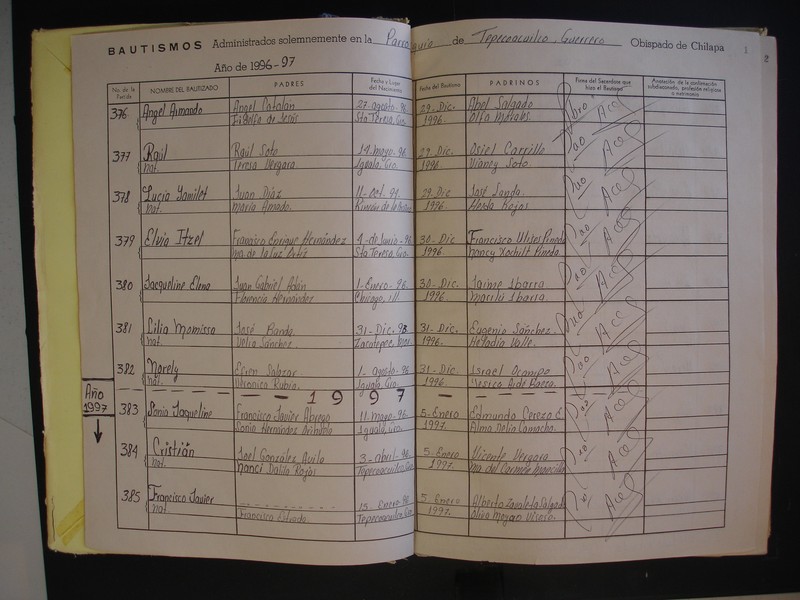 BAUTISMOS Administrados solemnemente en la Parroquia de Tepecoacuilco, Guerrero Obispado de Chilapa 1
Año de 1996-97
2
No. de la Partida NOMBRE DEL BAUTIZADO PADRES Fecha y Lugar del Nacimiento Fecha del Bautismo PADRINOS Firma del Sacerdote que hizo el Bautismo Anotación de la confirmación subdiaconado, profesión religiosa o matrimonio
376 Angel Armando Angel Catalan 27-agosto-96 29-Dic. Abel Salgado
de Jesús Sta Teresa, Gro. 1996.
377 Raúl Raúl Soto 14-mayo-96 29-Dic. Osiel Carrillo
nat. Teresa Vergara Iguala, Gro. 1996. Vianey Soto
378 Lucia Yamilet Juan Díaz 11-Oct. 29-Dic José Landa
nat. María Amado. Rincón de la 1996. Rojas
379 Elvia Itzel Francisco Enrique Hernández 4-de Junio-96 30-Dic Francisco Ulises Pineda
nat. ma de la luz Ortiz Sta Teresa, Gro 1996. nancy Xochilt Pineda
380 Jacqueline Elena Juan Gabriel Adán 1-Enero-96 30-Dic. Jaime Ibarra
Florencia Hernández Chicago, Ill 1996 Ibarra.
381 Lilia José Banda 31-Dic. 31-Dic. Eugenio Sánchez
nat. Delia Sánchez. Zacatepec, Mor. 1996. Valle.
382 Narely Efren Salazar 1-agosto-96 31-Dic Israel Ocampo
nat. Veronica Rubio. Iguala, Gro. 1996
Año 1997
1 9 9 7
383 Sonia Jaqueline Francisco Javier Abrego 11-mayo-96 5-Enero Edmundo Cerezo
Sonia Hernández Iguala, Gro. 1997. Alma Delia Camacho.
384 Cristián Joel González Avila 3-abril-96 5-Enero Vicente Vergara
nat. Nanci Dalila Rojas Tepecoacuilco, Gro 1997. ma del Carmen
385 Francisco Javier 15-Enero-96 5-Enero Alberto
nat. Francisca Estrada. Tepecoacuilco, Gro 1997. Oliva